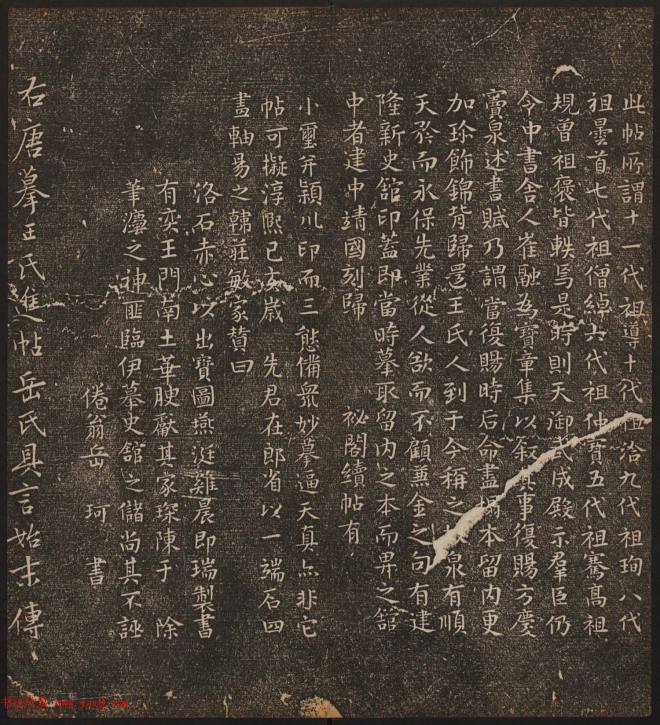 此帖所謂十一代祖導十代祖洽九代祖珣八代
祖曇首七代祖僧綽六代祖仲寶五代祖騫高祖
規曾祖褒皆軼焉是時則天御武成殿示羣臣仍
令中書舍人崔融為寶章集以敘其事復賜方慶
竇泉述書賦乃謂當復賜時后命盡搨本留內更
加珍飾錦背歸還王氏人到于今稱之 泉有順
天矜而永保先業從人欲而不顧兼金之句有建
隆新史舘印蓋即當時摹取留內之本而畀之舘
中者建中靖國刻歸 祕閣續帖有
小璽并潁川印而三態備衆妙摹逼天真亦非它
帖可擬淳熈已亥歲 先君在郎省以一端石四
畫軸易之韓莊敏家贊曰
洛石赤心以出寶圖燕涎雞晨即瑞製書
有奕王門南土華腴獻其家琛陳于 除
筆灋之神匪臨伊摹史舘之儲尚其不誣
倦翁岳 珂 書
右唐摹王氏進帖岳氏具言始末傳